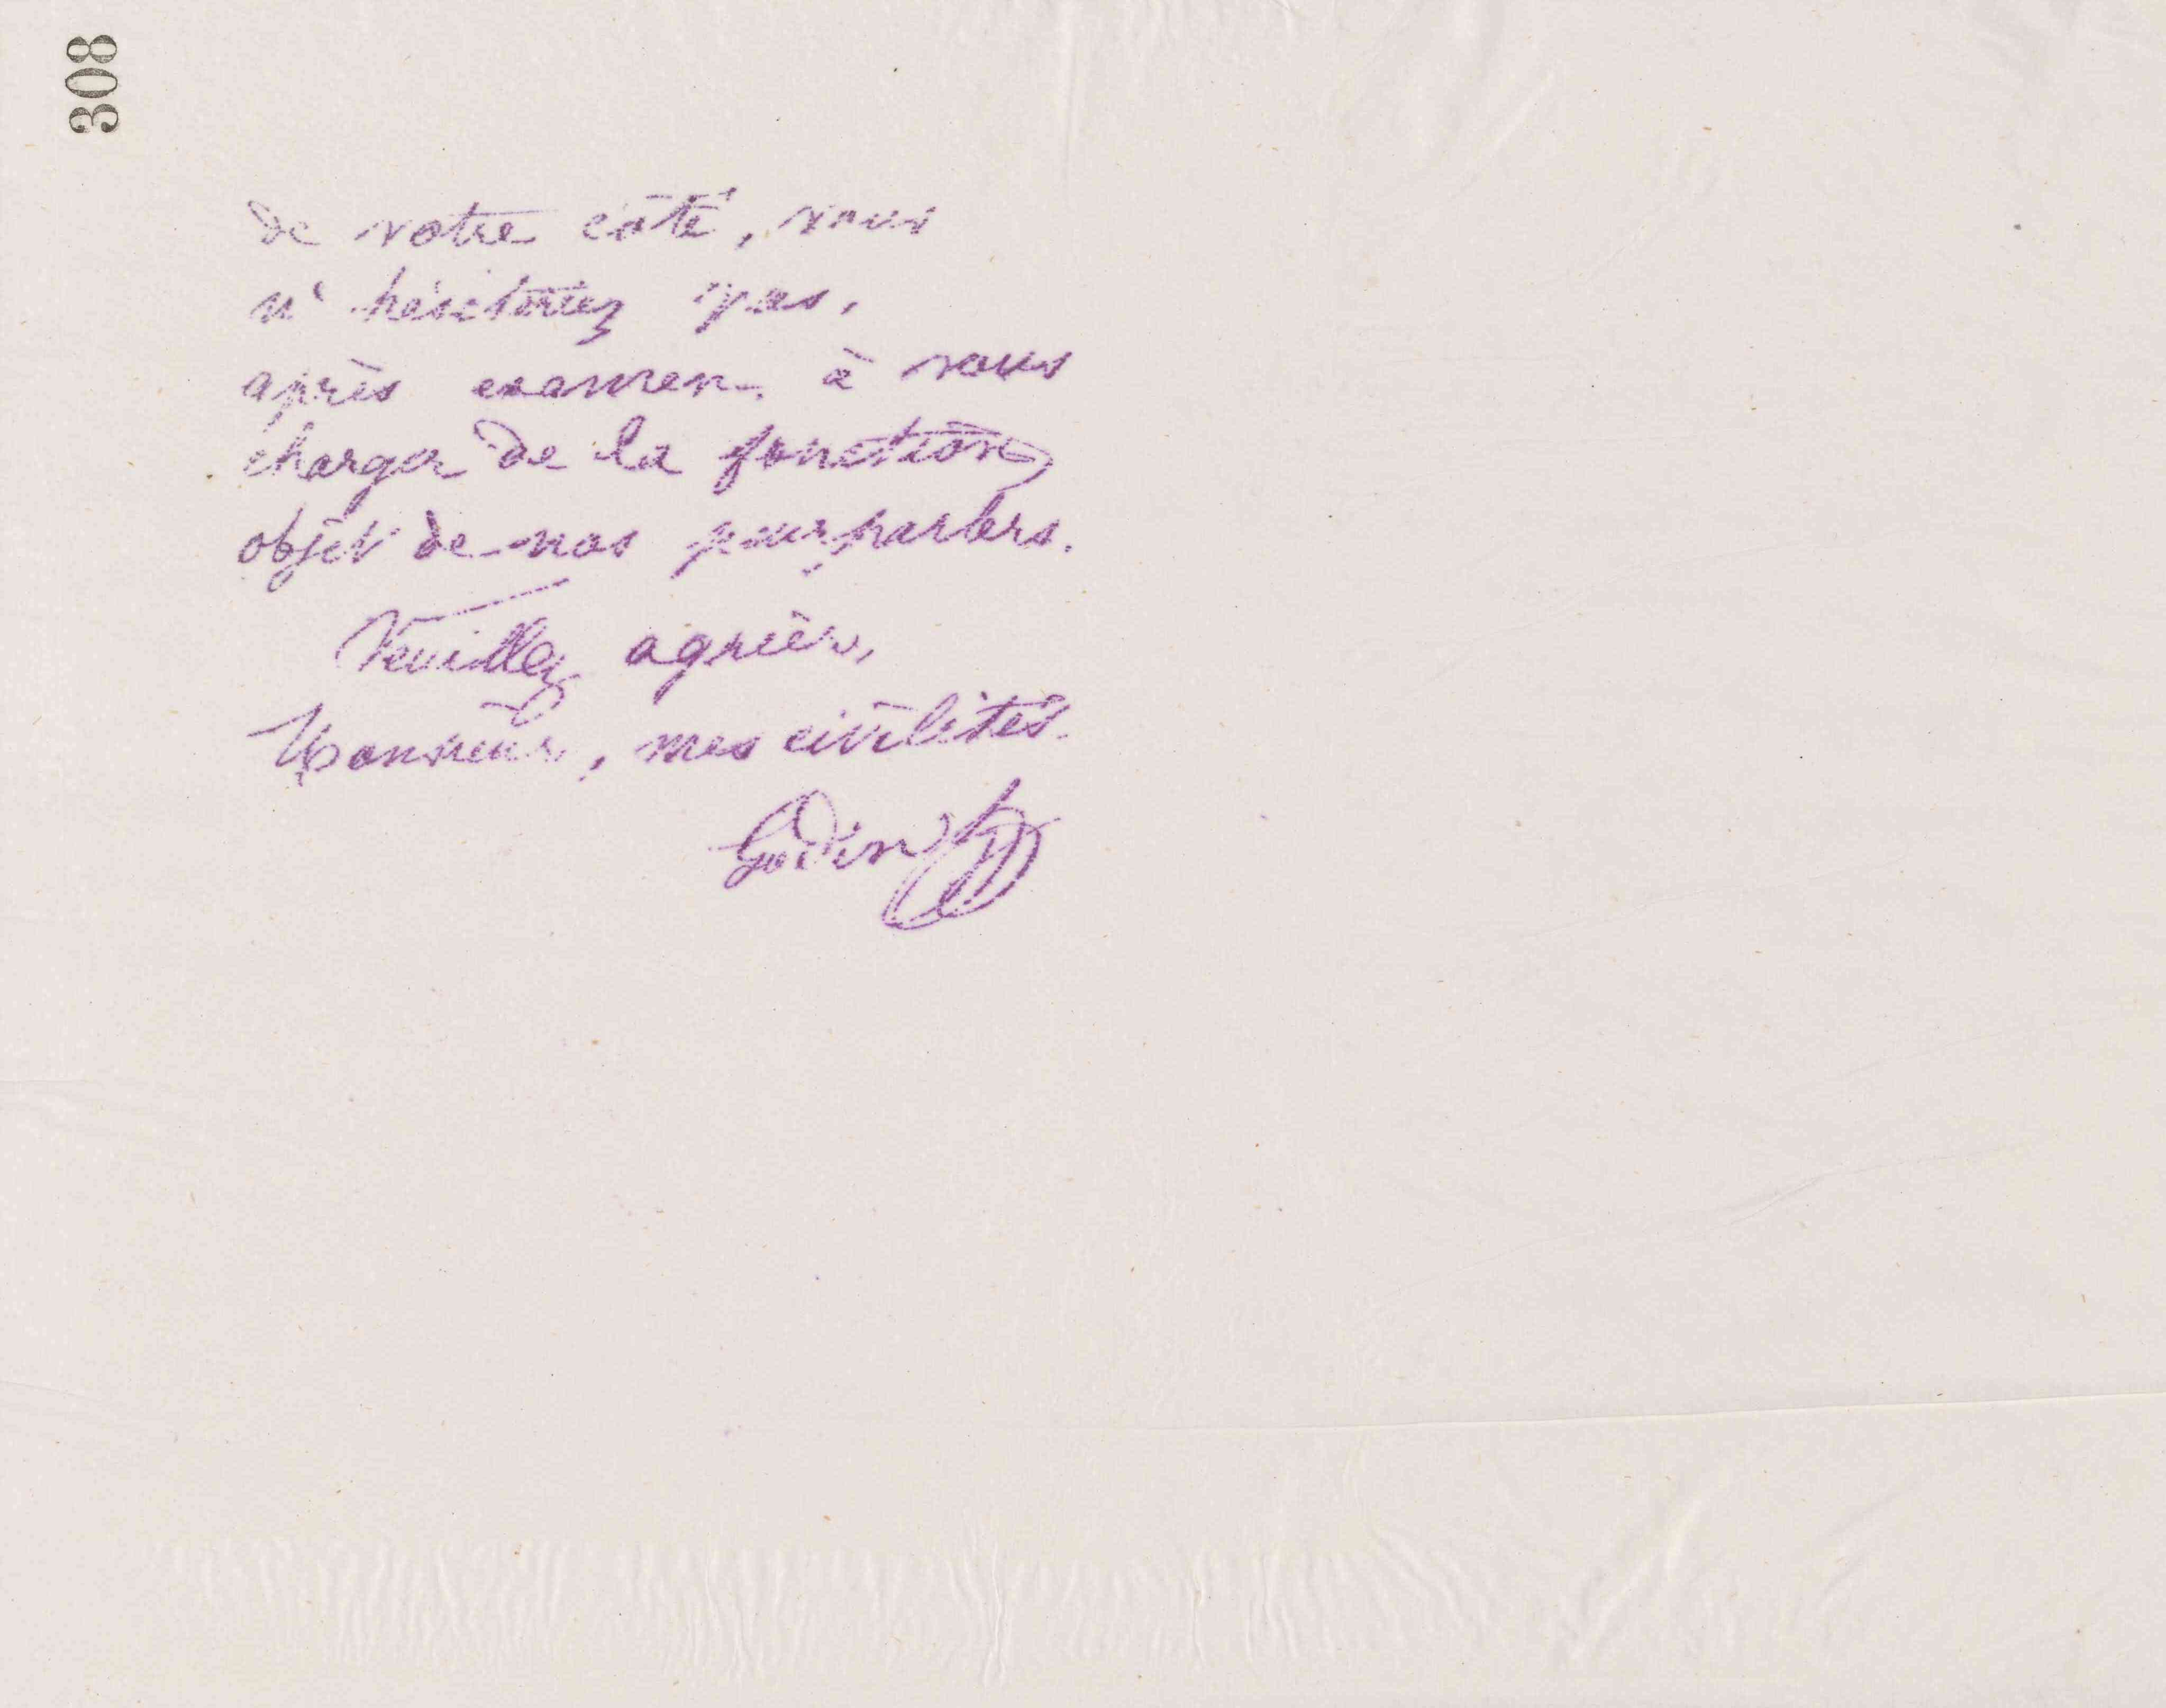 308
de votre côté, vous
n'hésiteriez pas,
après examen, à vous
charger de la fonction
objet de nos pourparlers.
Veuillez agréer,
Monsieur, mes civilités.
Godin